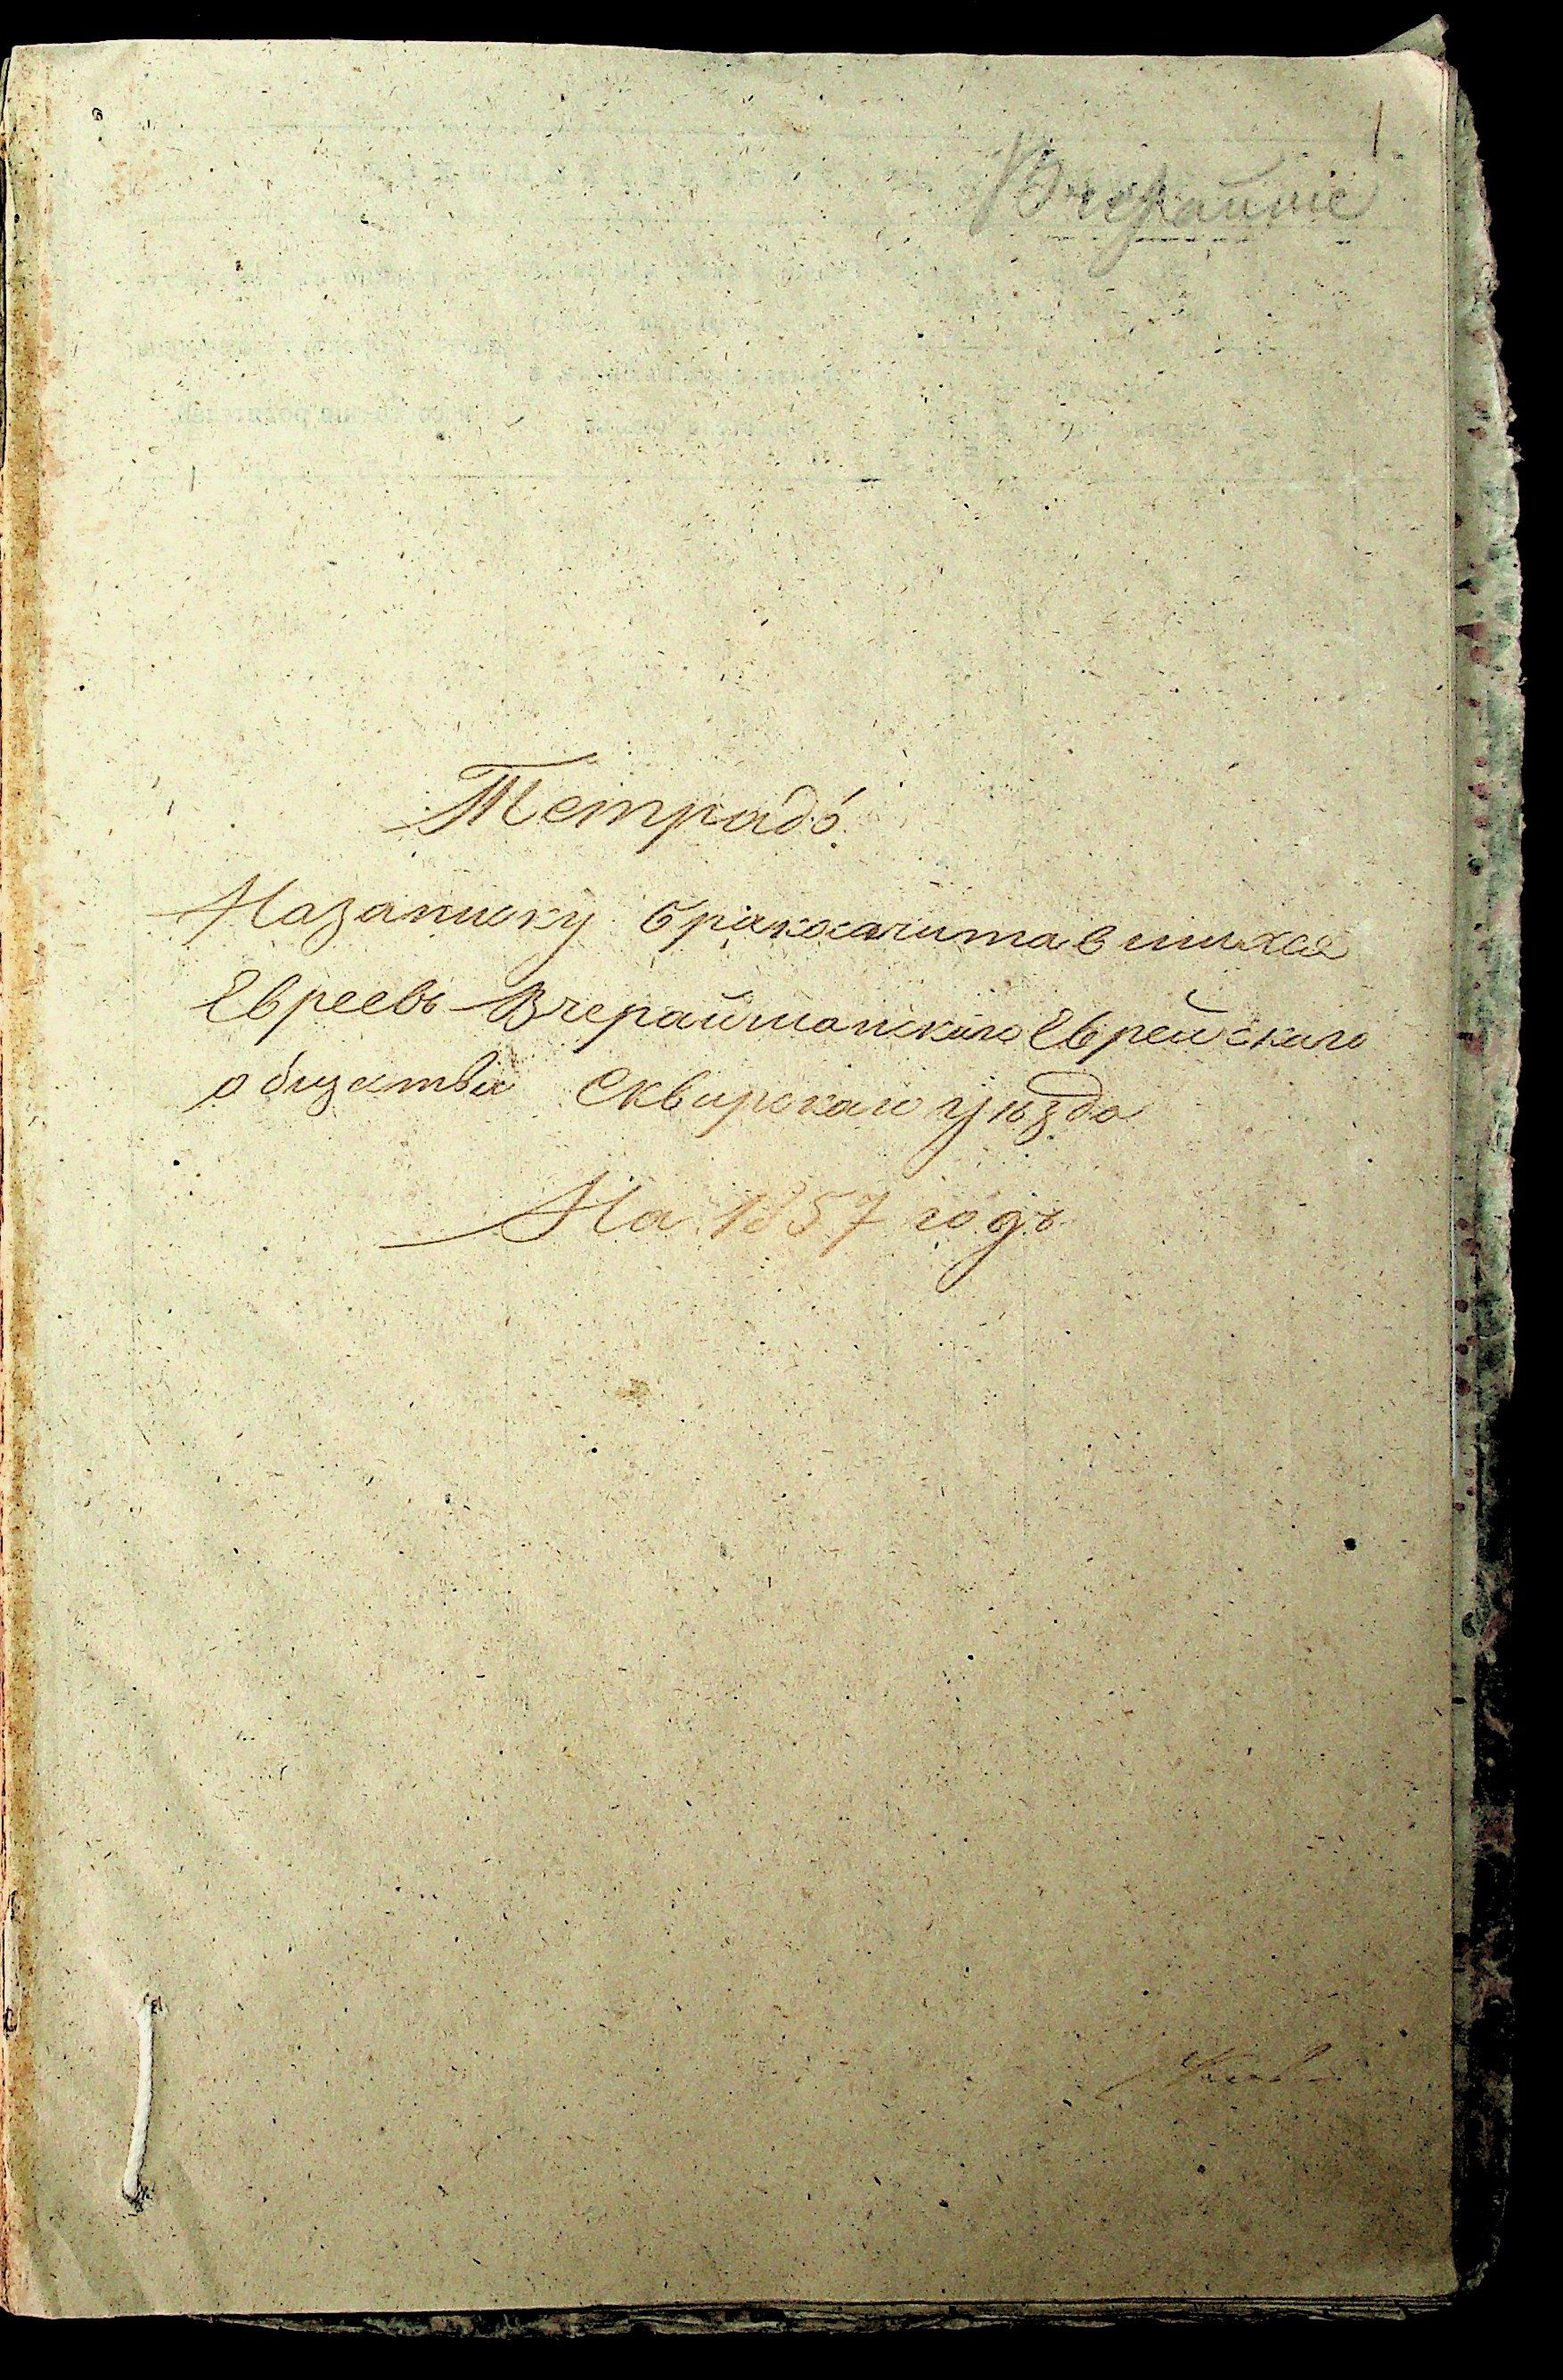 1
Вчерайшіе
Тетрадь
Назаписку бракосочитавшихся
Евреевъ Вчерайшанскаго Еврейскаго
общества Сквирскаго уѣзда
На 1857 годъ